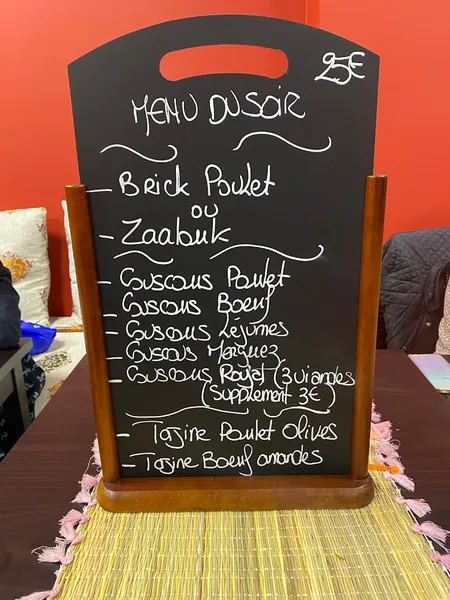 25€
MENU DU SOIR
- Brick Poulet
ou
- Zaalouk
- Couscous Poulet
- Couscous Boeuf
- Couscous Légumes
- Couscous Merguez
- Couscous Royal (3 viandes
(Supplement 3€)
- Tajine Poulet Olives
- Tajine Boeuf amandes